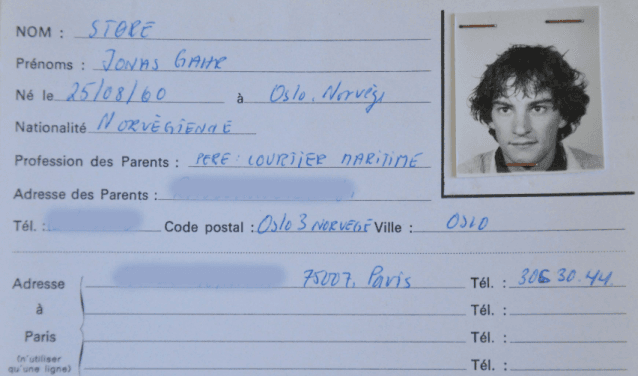 NOM : STØRE
Prénoms : JONAS GAHR
Né le 25/08/60 à Oslo, Norvège
Nationalité NORVÈGIENNE
Profession des Parents : PERE : COURTIER MARITIME
Adresse des Parents :
Tél. : Code postal : OSLO 3 NORVEGE Ville : OSLO
Adresse 75007, Paris Tél. : 306 30.44.
à Tél. :
Paris Tél. :
(n'utiliser
qu'une ligne) Tél. :